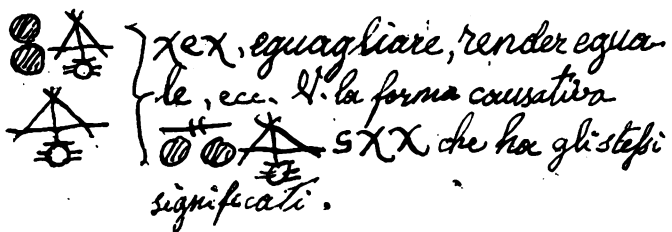 χeχ, eguagliare, render egua-
le, ecc. V. la forma causativa
sχχ che ha gli stessi
significati.